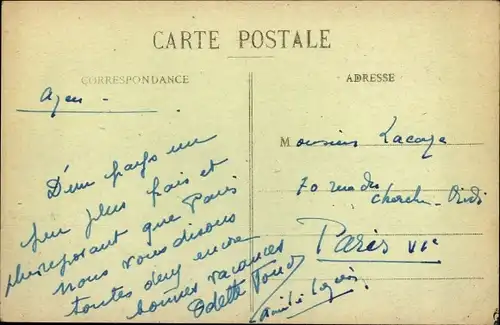 CARTE POSTALE
CORRESPONDANCE
Agen
D'un pays un
peu plus frais et
plus reposant que Paris
nous vous disons
toutes deux encore
bonnes vacances
Odette
ADRESSE
Monsieur Lacaze
70 rue du
Cherche-Midi
Paris VIe